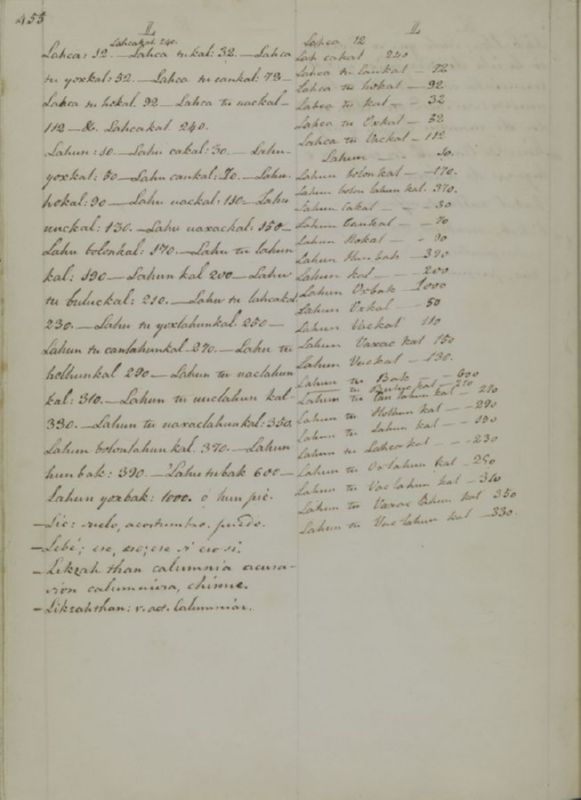 455
L
Lahcakal. 240.
Lahca: 12. — Lahca tukal: 32. — Lahca
tu yoxkal: 52. — Lahca tu cankal: 72 —
Lahca tu hokal. 92 — Lahca tu uackal —
112 — &. Lahcakal. 240.
Lahun: 10. — Lahu cakal: 30. — Lahu-
yoxkal: 50 — Lahu cankal: 70. — Lahu-
hokal: 90 — Lahu uackal: 110. — Lahu
uuckal: 130. — Lahu uaxackal: 150 —
Lahu bolonkal: 170. — Lahu tu lahun
kal: 190 — Lahun kal 200 — Lahu
tu buluckal: 210. — Lahu tu lahcakal
230. — Lahu tu yoxlahunkal 250 —
Lahun tu canlahunkal 270. — Lahu tu
holhunkal 290 — Lahun tu uaclahun
kal: 310. — Lahun tu uuclahun kal-
330. — Lahun tu uaxaclahunkal: 350.
Lahun bolonlahun kal. 370. — Lahun
hun bak: 390. — Lahu tu bak 600 —
Lahun yoxbak: 1000. o hun pic.
— Lic: suelo, acostumbro. puedo.
— Lebé; ese, eso; ese si eso si.
— Likzah than calumnia acusa-
cion calumniosa, chisme.
— Likzahthan: v. act. Calumniar.
L
Lahca 12
Lah cakal 240
Lahca tu Cankal — 72
Lahca tu hokal — 92
Lahca tu kal — — 32
Lahca tu Oxkal — 52
Lahca tu Vackal — 112
Lahun — — 10.
Lahun bolon kal — 170.
Lahun bolon lahun kal. 370.
Lahun Cakal — — 30
Lahun Cankal — — 70
Lahun Hokal — — 90
Lahun Hun bak — 390
Lahun kal — — 200
Lahun Oxbak — 1000
Lahun Oxkal — 50
Lahun Vackal 110
Lahun Vaxac kal 150
Lahun Vuckal — 130.
Lahun tu Bak — — 600
Lahun tu Buluc kal — 210
Lahun tu Can lahun kal — 270
Lahun tu Holhun kal — — 290
Lahun tu Lahun kal — — 190
Lahun tu Lahca kal — — 230
Lahun tu Oxlahun kal — 250
Lahun tu Vac lahun kal — 310
Lahun tu Vaxac lahun kal 350
Lahun tu Vuc lahun kal — 330.